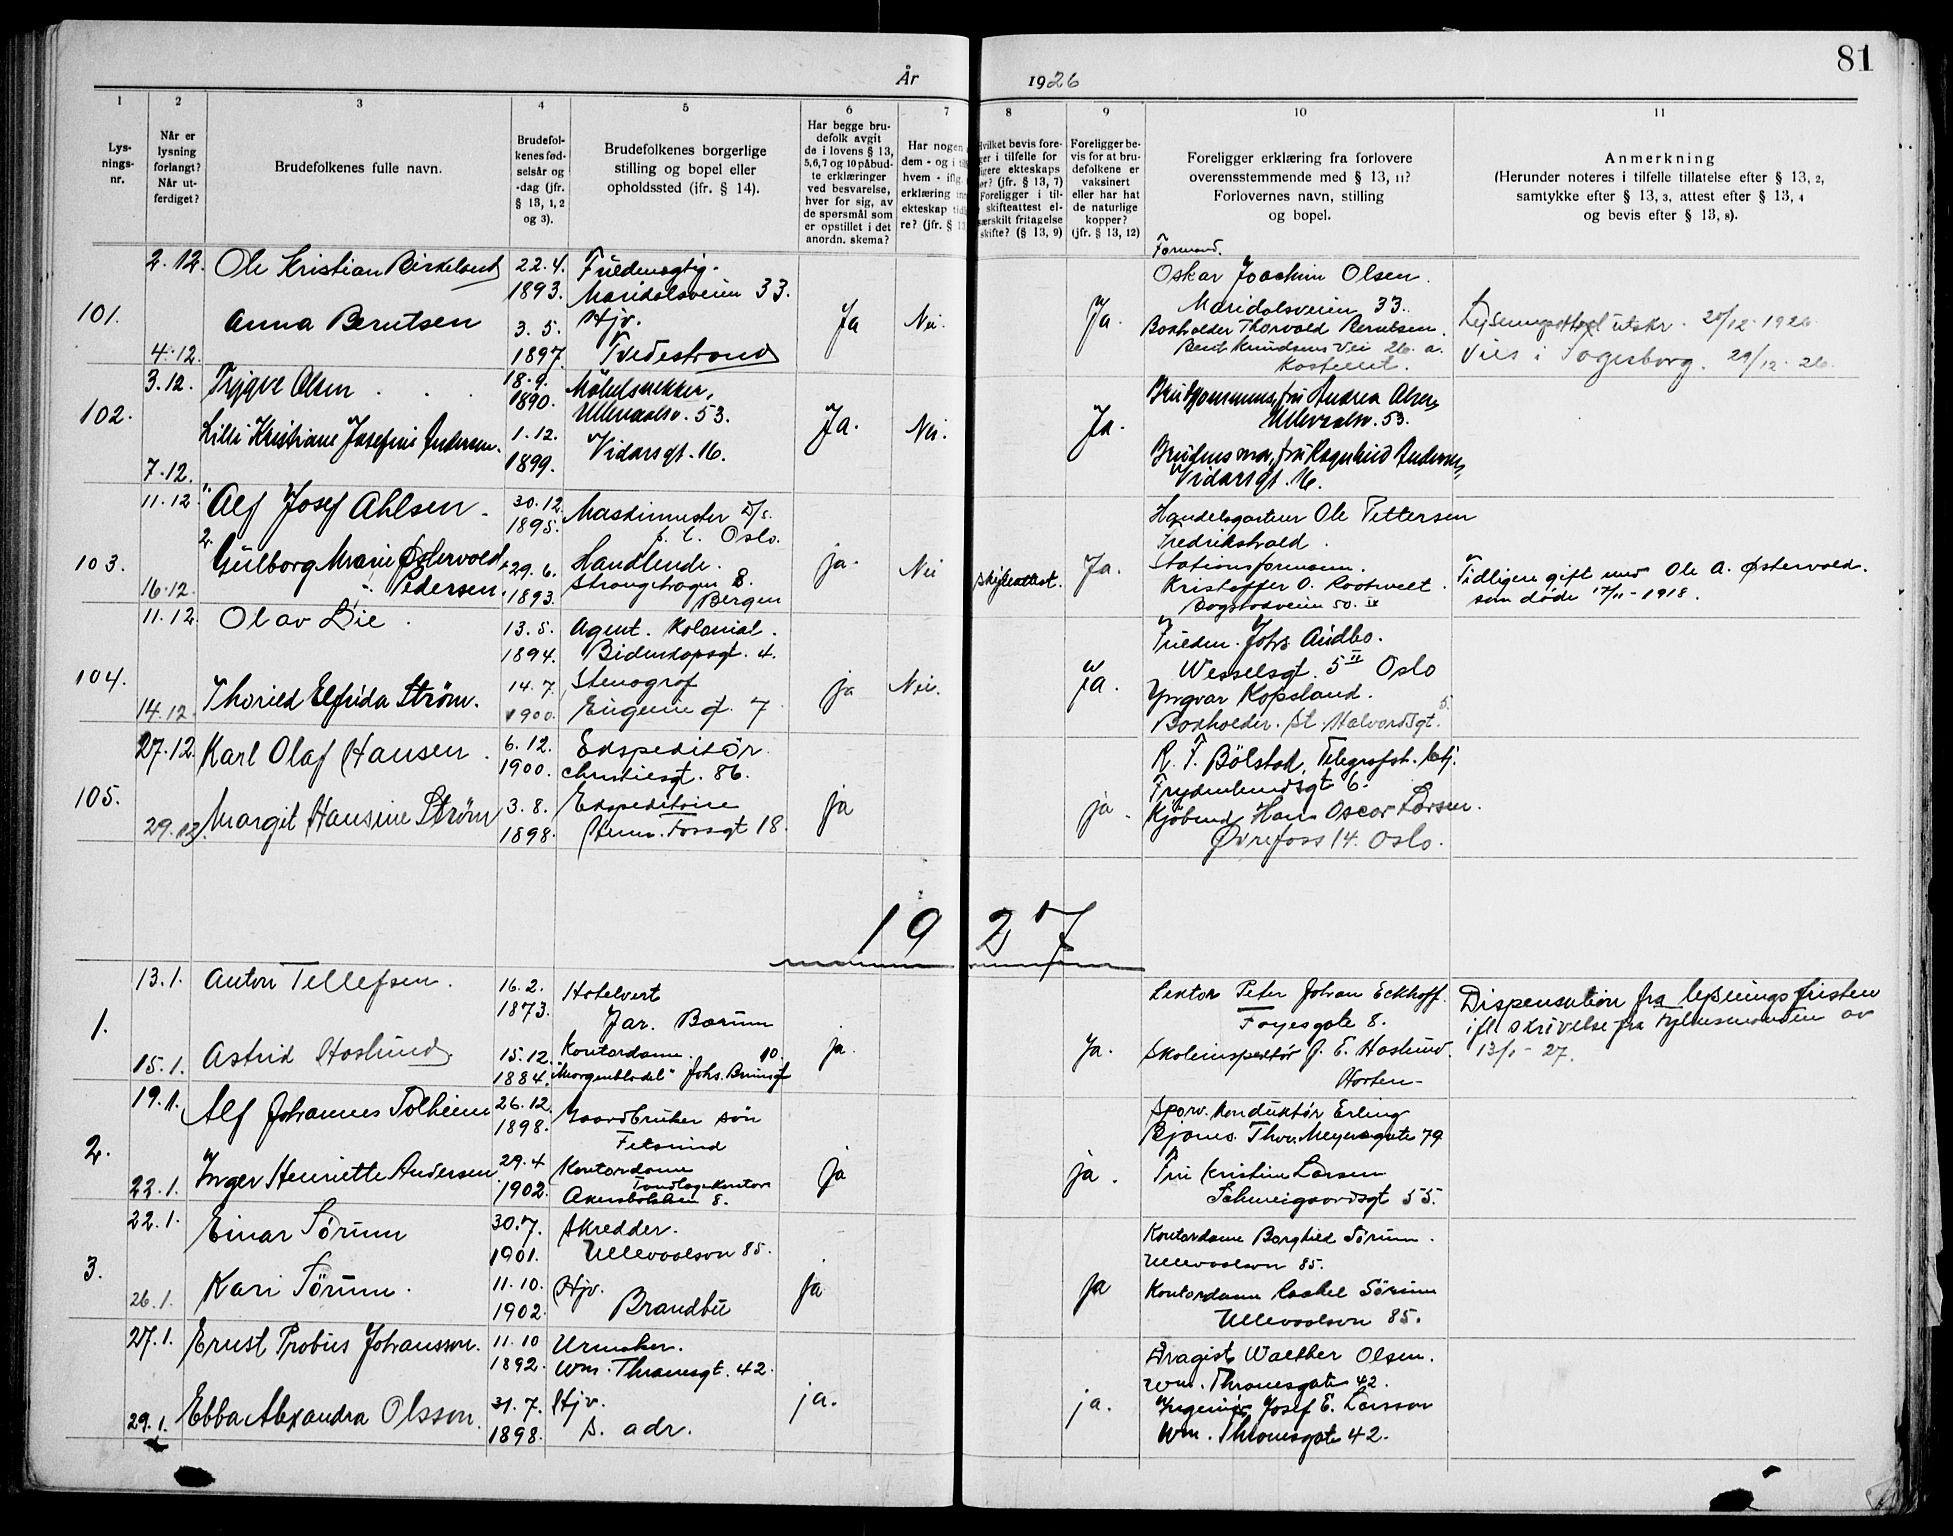 81
År 1926
1 2 3 4 5 6 7 8 9 10 11
Lys-
nings-
nr.
Når er
lysning
forlangt?
Når ut-
ferdiget?
Brudefolkenes fulle navn.
Brudefol-
kenes fød-
selsår og
-dag (jfr.
§ 13, 1, 2
og 3).
Brudefolkenes borgerlige
stilling og bopel eller
opholdssted (jfr. § 14).
Har begge bru-
defolk avgit
de i lovens § 13,
5, 6, 7 og 10 påbud-
te erklæringer
ved besvarelse,
hver for sig, av
de spørsmål som
er opstillet i det
anordn. skema?
Har nogen
dem - og i
hvem - iflg.
erklæring
ekteskap
re? (jfr. §
Hvilket bevis fore-
ger i tilfelle for
ligere ekteskaps
ør? (jfr. § 13, 7)
Foreligger i til-
skifteattest el-
særskilt fritagelse
skifte? (§ 13, 9)
Foreligger be-
vis for at bru-
defolkene er
vaksinert
eller har hat
de naturlige
kopper?
(jfr. § 13, 12)
Foreligger erklæring fra forlovere
overensstemmende med § 13, 11?
Forlovernes navn, stilling
og bopel.
Anmerkning
(Herunder noteres i tilfelle tillatelse efter § 13, 2,
samtykke efter § 13, 3, attest efter § 13, 4
og bevis efter § 13, 8).
101.
2.12.
4.12.
Ole Kristian Birkeland
Anna Berntsen
22.4.
1893.
3.5.
1897.
Fuldmegtig.
Maridalsveien 33.
Hjv.
Tvedestrand
Ja
Nei.
Ja.
Formand.
Oskar Joachim Olsen.
Maridalsveien 33.
Boxholder Thorvald Berntsen.
Bent Knudsens Vei 26 a.
Lysningsattest utskr. 28/12-1926.
Vies i 29/12-26.
102.
3.12.
7.12.
Trygve Olsen
Lilli Kristiane Josefine Andersen.
18.9.
1890.
1.12.
1899.
Möbelsnekker,
Ullevaalsv. 53.
Vidarsgt. 16.
Ja.
Nei.
Ja.
Brudgommens, fru Andrea Olsen,
Ullevaalsv. 53.
Brudens mor, fru Ragnhild Andersen,
Vidarsgt. 16.
103.
11.12
16.12.
1. Alf Josef Ahlsen.
2. Gulborg Marie Østervold,
f. Pedersen.
30.12.
1895.
29.6.
1893.
Maskinmester D/S.
p. t. Oslo.
Handlende.
Strangehagen 8.
Bergen
ja.
Nei
skifteattest.
Ja.
Handelsgartner Ole Pettersen
Fredrikshald.
Stationsformann.
Kristoffer O. Rootwelt.
Bogstadveien 50. IV
Tidligere gift med Ole A. Østervold.
som døde 17/11-1918.
104.
11.12.
14.12.
Olav Lie.
Thorild Elfrida Strøm.
13.5.
1894.
14.7.
1900.
Agent. Kolonial.
Bidenkapsgt. 4.
Stenograf
Eugenie gt. 7
ja
Nei.
ja.
Fuldm. Johs. Audbo.
Wesselsgt. 5 II Oslo
Yngvar Kopsland.
Boxholder. St. Halvardsgt. 5.
105.
27.12.
29.12.
Karl Olaf Hansen.
Margit Hansine Strøm
6.12.
1900.
3.8.
1898.
Ekspeditør
Christiesgt. 86.
Ekspeditrise
Fossgt 18.
ja
ja.
R. F. Bölstad, Telegrafst.
Frydenlundsgt 6.
Kjøbmd. Hans Oscar Larsen.
Øvrefoss 14. Oslo.
1927
1.
13.1.
15.1.
Anton Tellefsen.
Astrid Haslund.
16.2.
1873.
15.12.
1884.
Hotelvert
Jar. Bærum
Kontordame. 10.
"Morgenbladet" Johs. Brunsgt
ja.
Ja.
Lektor Peter Johan Eckhoff.
Foyesgate 8.
Skoleinspektør G. E. Haslund.
Horten-
Dispensation fra lysningsfristen
ifl. skrivelse fra fylkesmanden av
13/1-27.
2.
19.1.
22.1.
Alf Johannes Solheim
Inger Henriette Andersen
26.12.
1898.
29.4
1902.
Gaardbruker søn
Fetsund
Kontordame
Tandlægekontor
Akersbakken 8.
ja
ja.
Sporv. konduktør Erling
Bjanes. Thorv. Meyersgate 79.
Fru Kristine Larsen
Schweigaardsgt 55.
3.
22.1.
26.1.
Einar Sørum
Kari Sørum.
30.7.
1901.
11.10.
1902.
Skredder.
Ullevoalsvn 85.
Hjv.
Brandbu
ja
ja
Kontordame Borghild Sørum.
Ullevoalsvn 85.
Kontordame Rachel Sørum
Ullevoalsvn 85.
27.1.
29.1.
Ernst Probus Johansson.
Ebba Alexandra Olsson.
11.10
1892.
31.7.
1898.
Urmaker.
Wm. Thranesgt. 42.
Hjv.
S. adr.
ja.
ja.
Dragist Walther Olsen.
Wm. Thranesgate 42.
Ingeniør Josef E. Larsson
Wm. Thranesgate 42.